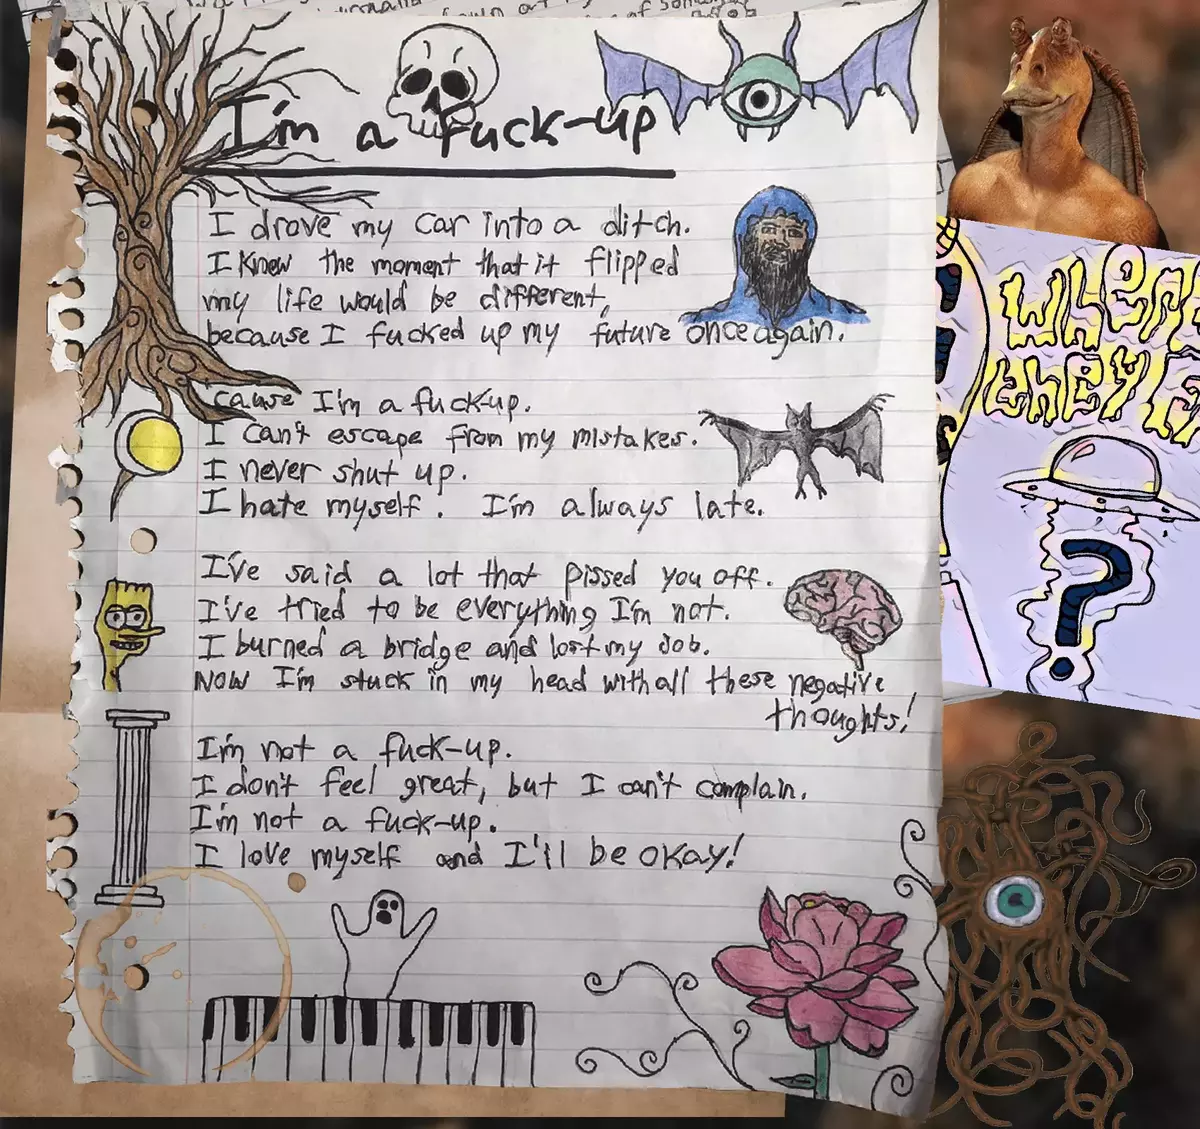 I'm a fuck-up
I drove my car into a ditch.
I knew the moment that it flipped
my life would be different,
because I fucked up my future once again.
'cause I'm a fuck-up.
I can't escape from my mistakes.
I never shut up.
I hate myself. I'm always late.
I've said a lot that pissed you off.
I've tried to be everything I'm not.
I burned a bridge and lost my job.
NOW I'm stuck in my head with all these negative
thoughts!
I'm not a fuck-up.
I don't feel great, but I can't complain.
I'm not a fuck-up.
I love myself and I'll be okay!
where
they
?